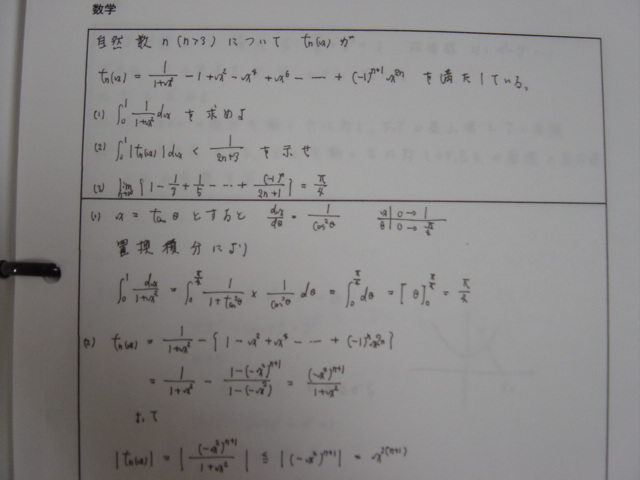 数学
自然数 n (n>3) について tn(x) が
tn(x) = 1/(1+x²) - 1 + x² - x⁴ + x⁶ - … + (-1)ⁿ⁺¹ x²ⁿ を満たしている。
(1) ∫₀¹ 1/(1+x²) dx を求めよ
(2) ∫₀¹ |tn(x)| dx < 1/(2n+3) を示せ
(3) lim {1 - 1/3 + 1/5 - … + (-1)ⁿ/(2n+1)} = π/4
(1) x = tanθ とすると dx/dθ = 1/cos²θ x | 0 → 1
θ | 0 → π/4
置換積分により
∫₀¹ dx/(1+x²) = ∫₀^(π/4) 1/(1+tan²θ) × 1/cos²θ dθ = ∫₀^(π/4) dθ = [θ]₀^(π/4) = π/4
(2) tn(x) = 1/(1+x²) - {1 - x² + x⁴ - … + (-1)ⁿ x²ⁿ}
= 1/(1+x²) - (1-(-x²)ⁿ⁺¹)/(1-(-x²)) = (-x²)ⁿ⁺¹/(1+x²)
よって
|tn(x)| = |(-x²)ⁿ⁺¹/(1+x²)| ≦ |(-x²)ⁿ⁺¹| = x²⁽ⁿ⁺¹⁾